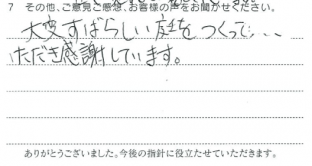 7 その他、ご意見ご感想、お客様の声をお聞かせください。
大変すばらしい庭をつくって...
いただき感謝しています。
ありがとうございました。今後の指針に役立たせていただきます。